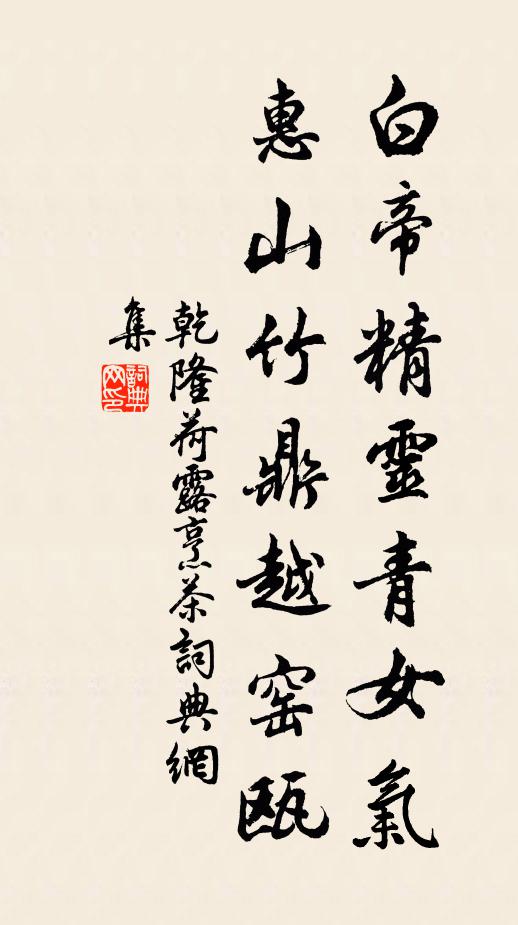 白帝精靈青女氣
惠山竹鼎越窑瓯
乾隆荷露烹茶詞典網
集
詞典网印